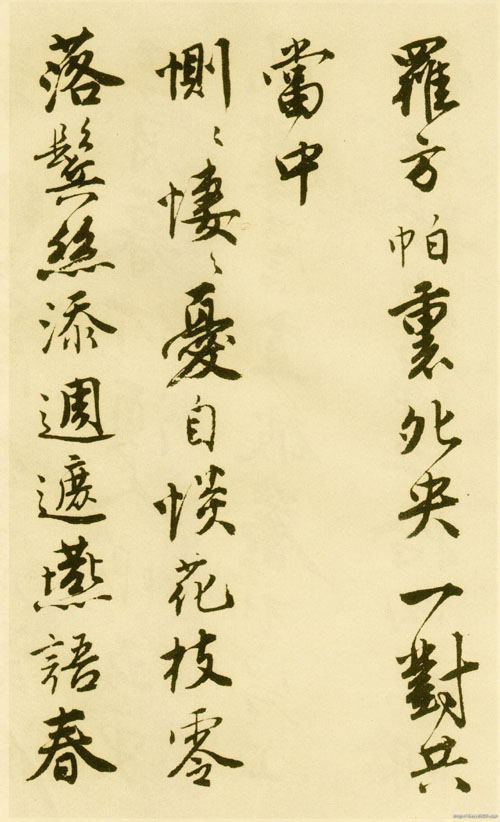 羅方帕裏夗央一對共
當中
惻〻悽〻憂自惔花枝零
落鬂絲添週遮燕語春